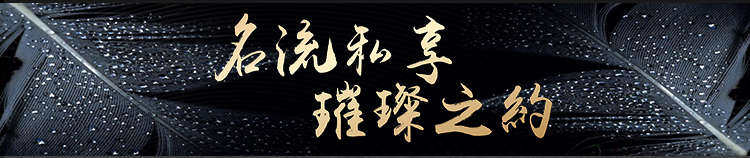 名流私享
璀璨之約